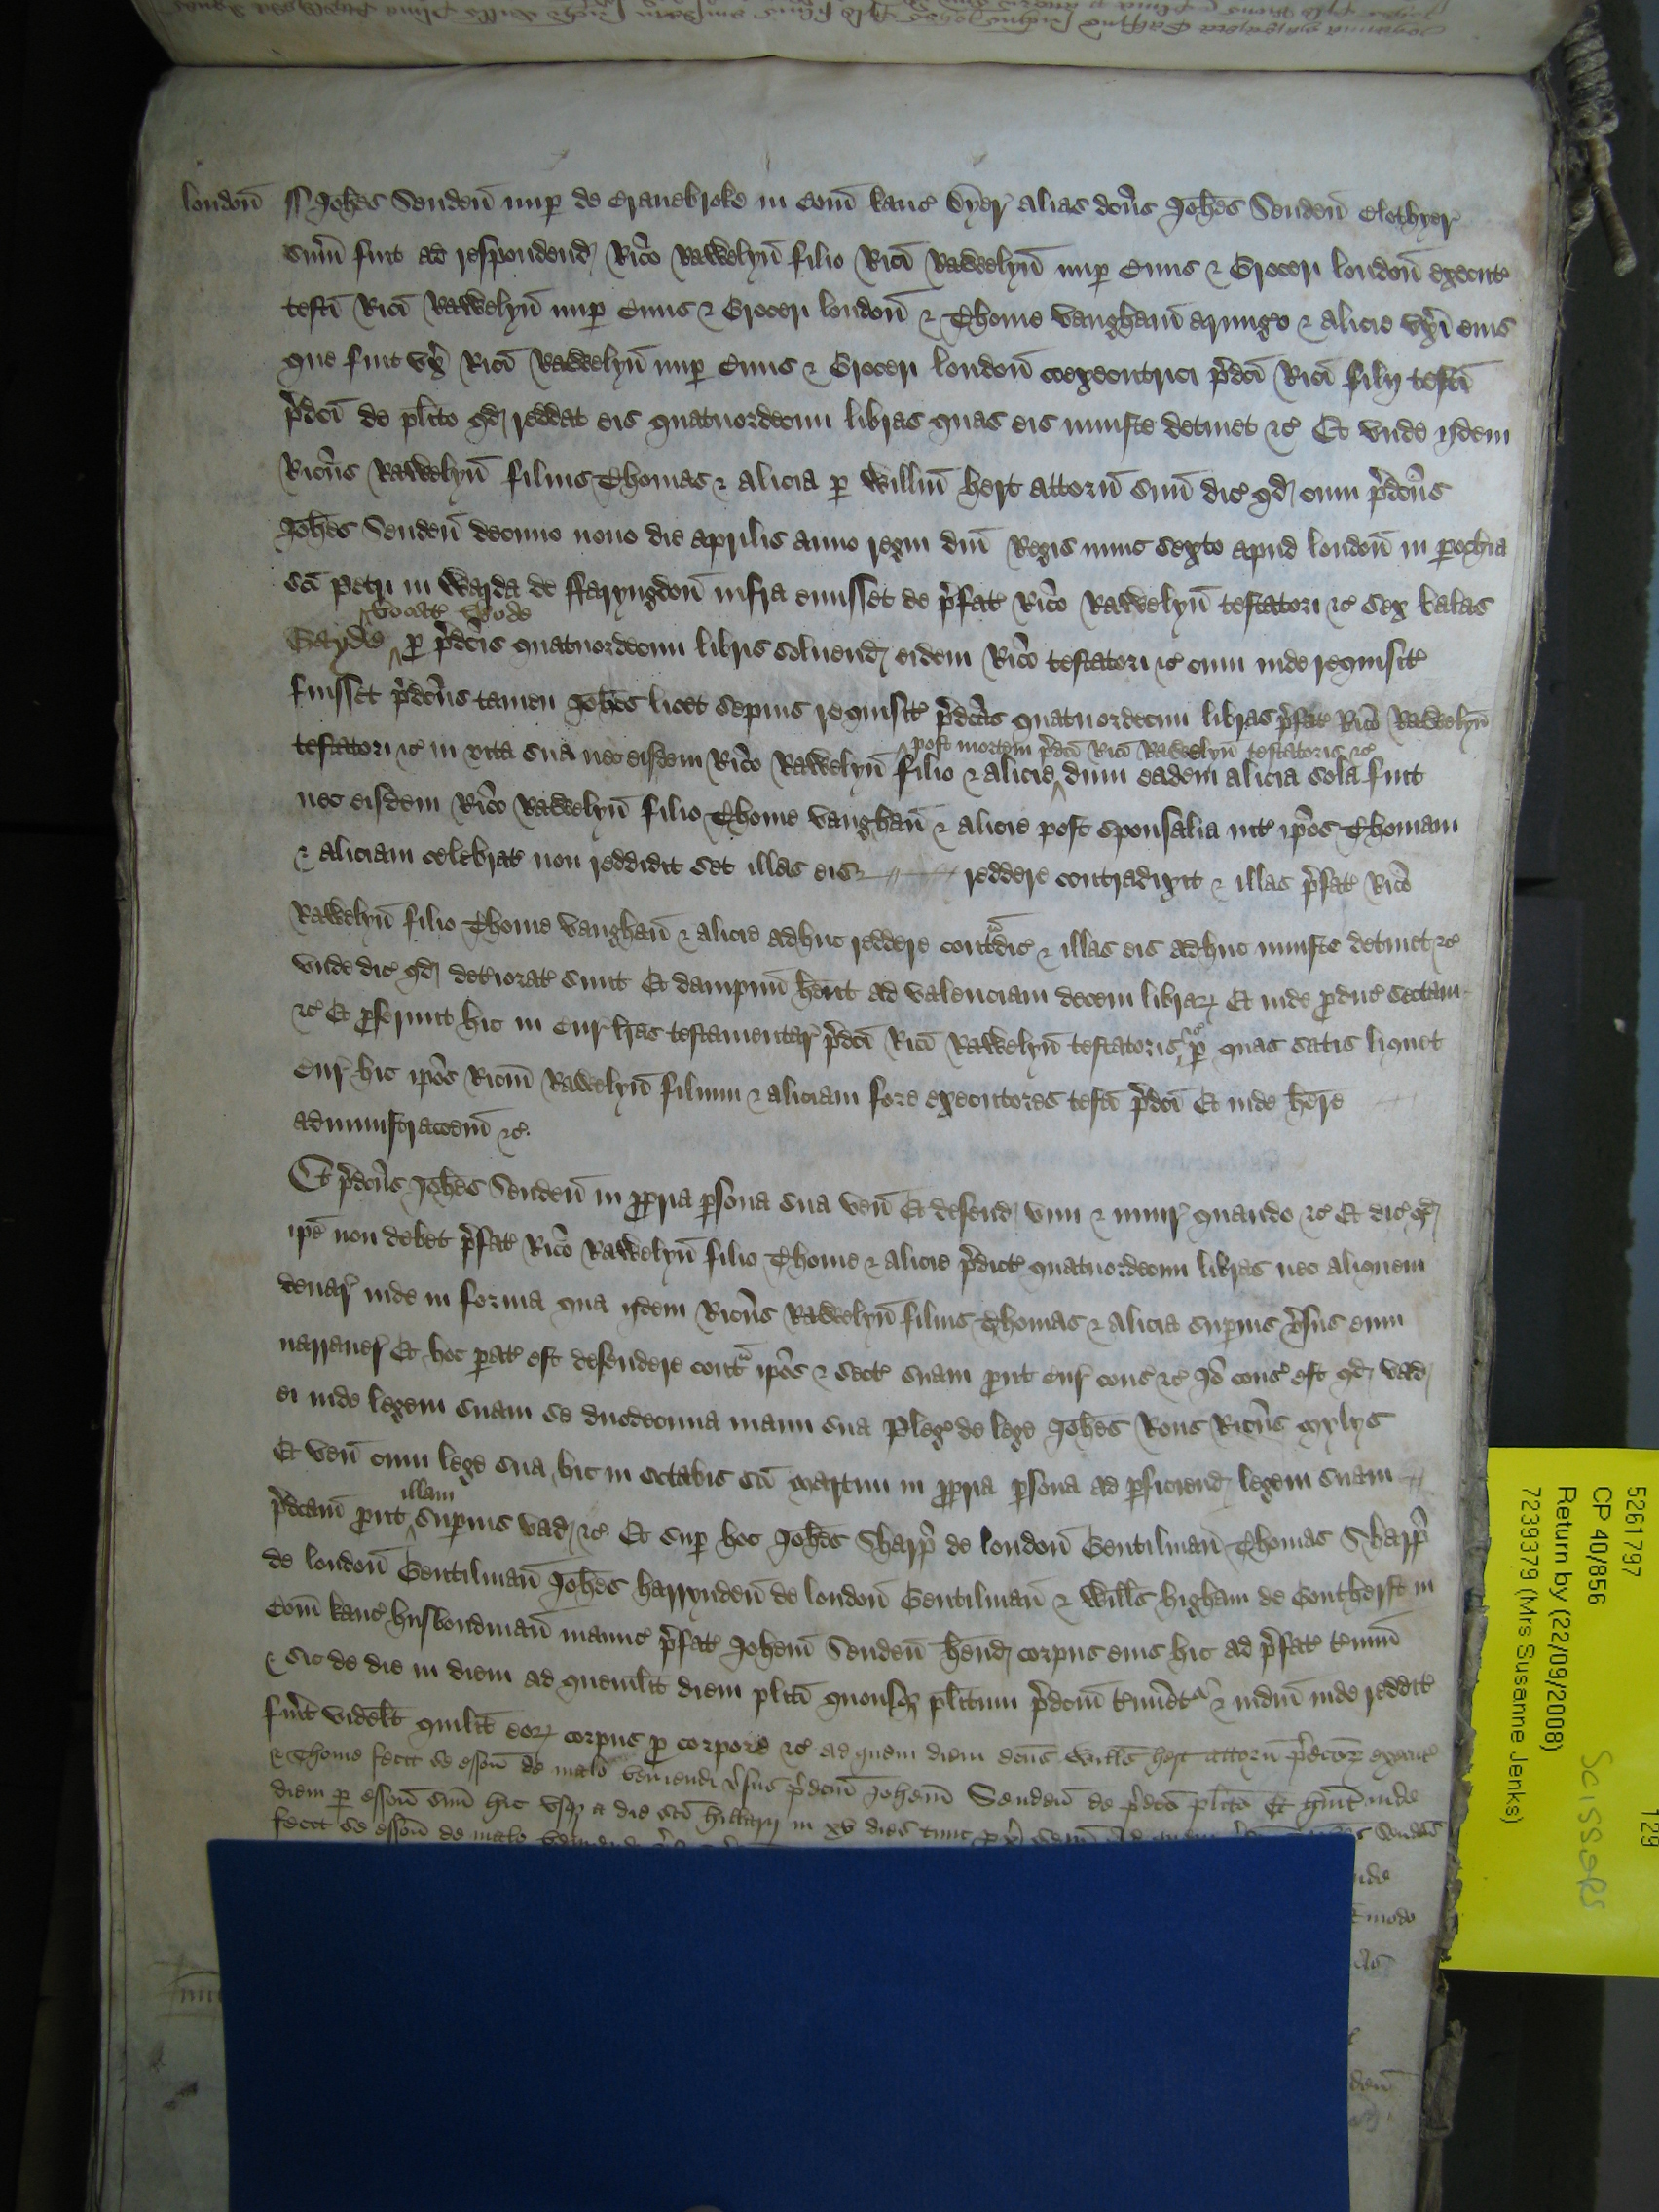 londoñ ss Johes Sendeñ nup de Cranebroke in Com̃ Kanc Dyer alias dcũs Johes Sendeñ Clothyer
sum̃ fuit ad respondend Rico Rawelyñ filio Rici Rawelyñ nup Civis & Groceri londoñ execut
testi Rici Rawelyñ nup Civis & Groceri londoñ & Thome vanghañ armigo & alicie uxi eius
que fuit ux Rici Rawelyñ nup Civis & Groceri londoñ coexecutrici pdci Rici filij testi
pdci de plito qd reddat eis quatuordecim libras quas eis iniuste detinet &c Et unde ijdem
Ricus Rawelyñ filius Thomas & alicia p Willm̃ hert attorñ suu dic qd cum pdcus
Johes Sendeñ decimo nono die aprilis anno regni dñi Regis nunc sexto apud londoñ in pochia
sci petri in Warda de ffaryngdoñ infra emisset de pfat Rico Rawelyñ testatori &c sex balas
Gayde p pdcis quatuordecim libris solvend eidem Rico testatori &c cum inde requisit
fuisset pdcus tamen Johes licet sepius requisit pdcas quatuordecim libras pfat Rico Rawelyñ
post mortem pdci Rici Rawelyñ testatoris &c
testatori &c in vita sua nec eisdem Rico Rawelyñ filio & alicie dum eadem alicia sola fuit
nec eisdem Rico Rawelyñ filio Thome vanghañ & alicie post sponsalia int ipos Thomam
& aliciam celebrat non reddidit set illas eis reddere contradixit & illas pfat Rico
Rawelyñ filio Thome vanghañ & alicie adhuc reddere contdic & illas eis adhuc iniuste detinet &c
unde dic qd deteriorat sunt Et dampnu hent ad valenciam decem librar Et inde pduc sectam
&c Et pferunt hic in Cur lras testamentar pdci Rici Rawelyñ testatoris p quas satis liquet
Cur hic ipos Ricm̃ Rawelyñ filium & aliciam fore executores testi pdci Et inde here
administracoem̃ &c
Et pdcus Johes Sendeñ in ppria psona sua veñ Et defend vim & iniur quando &c Et dic qd
ipe non debet pfat Rico Rawelyñ filio Thome & alicie pdict quatuordecim libras nec aliquem
denar inde in forma qua ijdem Ricus Rawelyñ filius Thomas & alicia superius vsus eum
narraver Et hoc pat est defendere cont ipos & sect suam put cur cons &c Io cons est qd vad
ei inde legem suam se duodecima manu sua Pleg de lege Johes Rous Ricus mylys
Et veñ cum lege sua hic in octabis sci martini in ppria psona ad pficiend legem suam
illam
pdcam put superius vad &c Et sup hoc Johes Sharp de londoñ Gentilmañ Thomas Sharp
de londoñ Gentilmañ Johes harryndeñ de londoñ Gentilmañ & Wills higham de Goutherst in
Com̃ Kanc husbondmañ manuc pfat Johem̃ Sendeñ hend corpus eius hic ad pfat tmiñ
& sic de die in diem ad quemlit diem pliti quousq plitum pdcm̃ tminet & iudm̃ inde reddit
fuit videlt quilit eor corpus p corpore &c ad quem diem Wills hert attorñ pdcor execut
& Thome fecit se essoñ de malo veniendi vsus pdcm̃ Johem̃ Sendeñ de pdco plito Et huit inde
diem p essoñ suu hic usq a die sci hillarij in xv dies tunc
fecit se essoñ de malo
5261797
CP 40/856
Return by (22/09/2008)
7239379 (Mrs Susanne Jenks)
Scissors
129